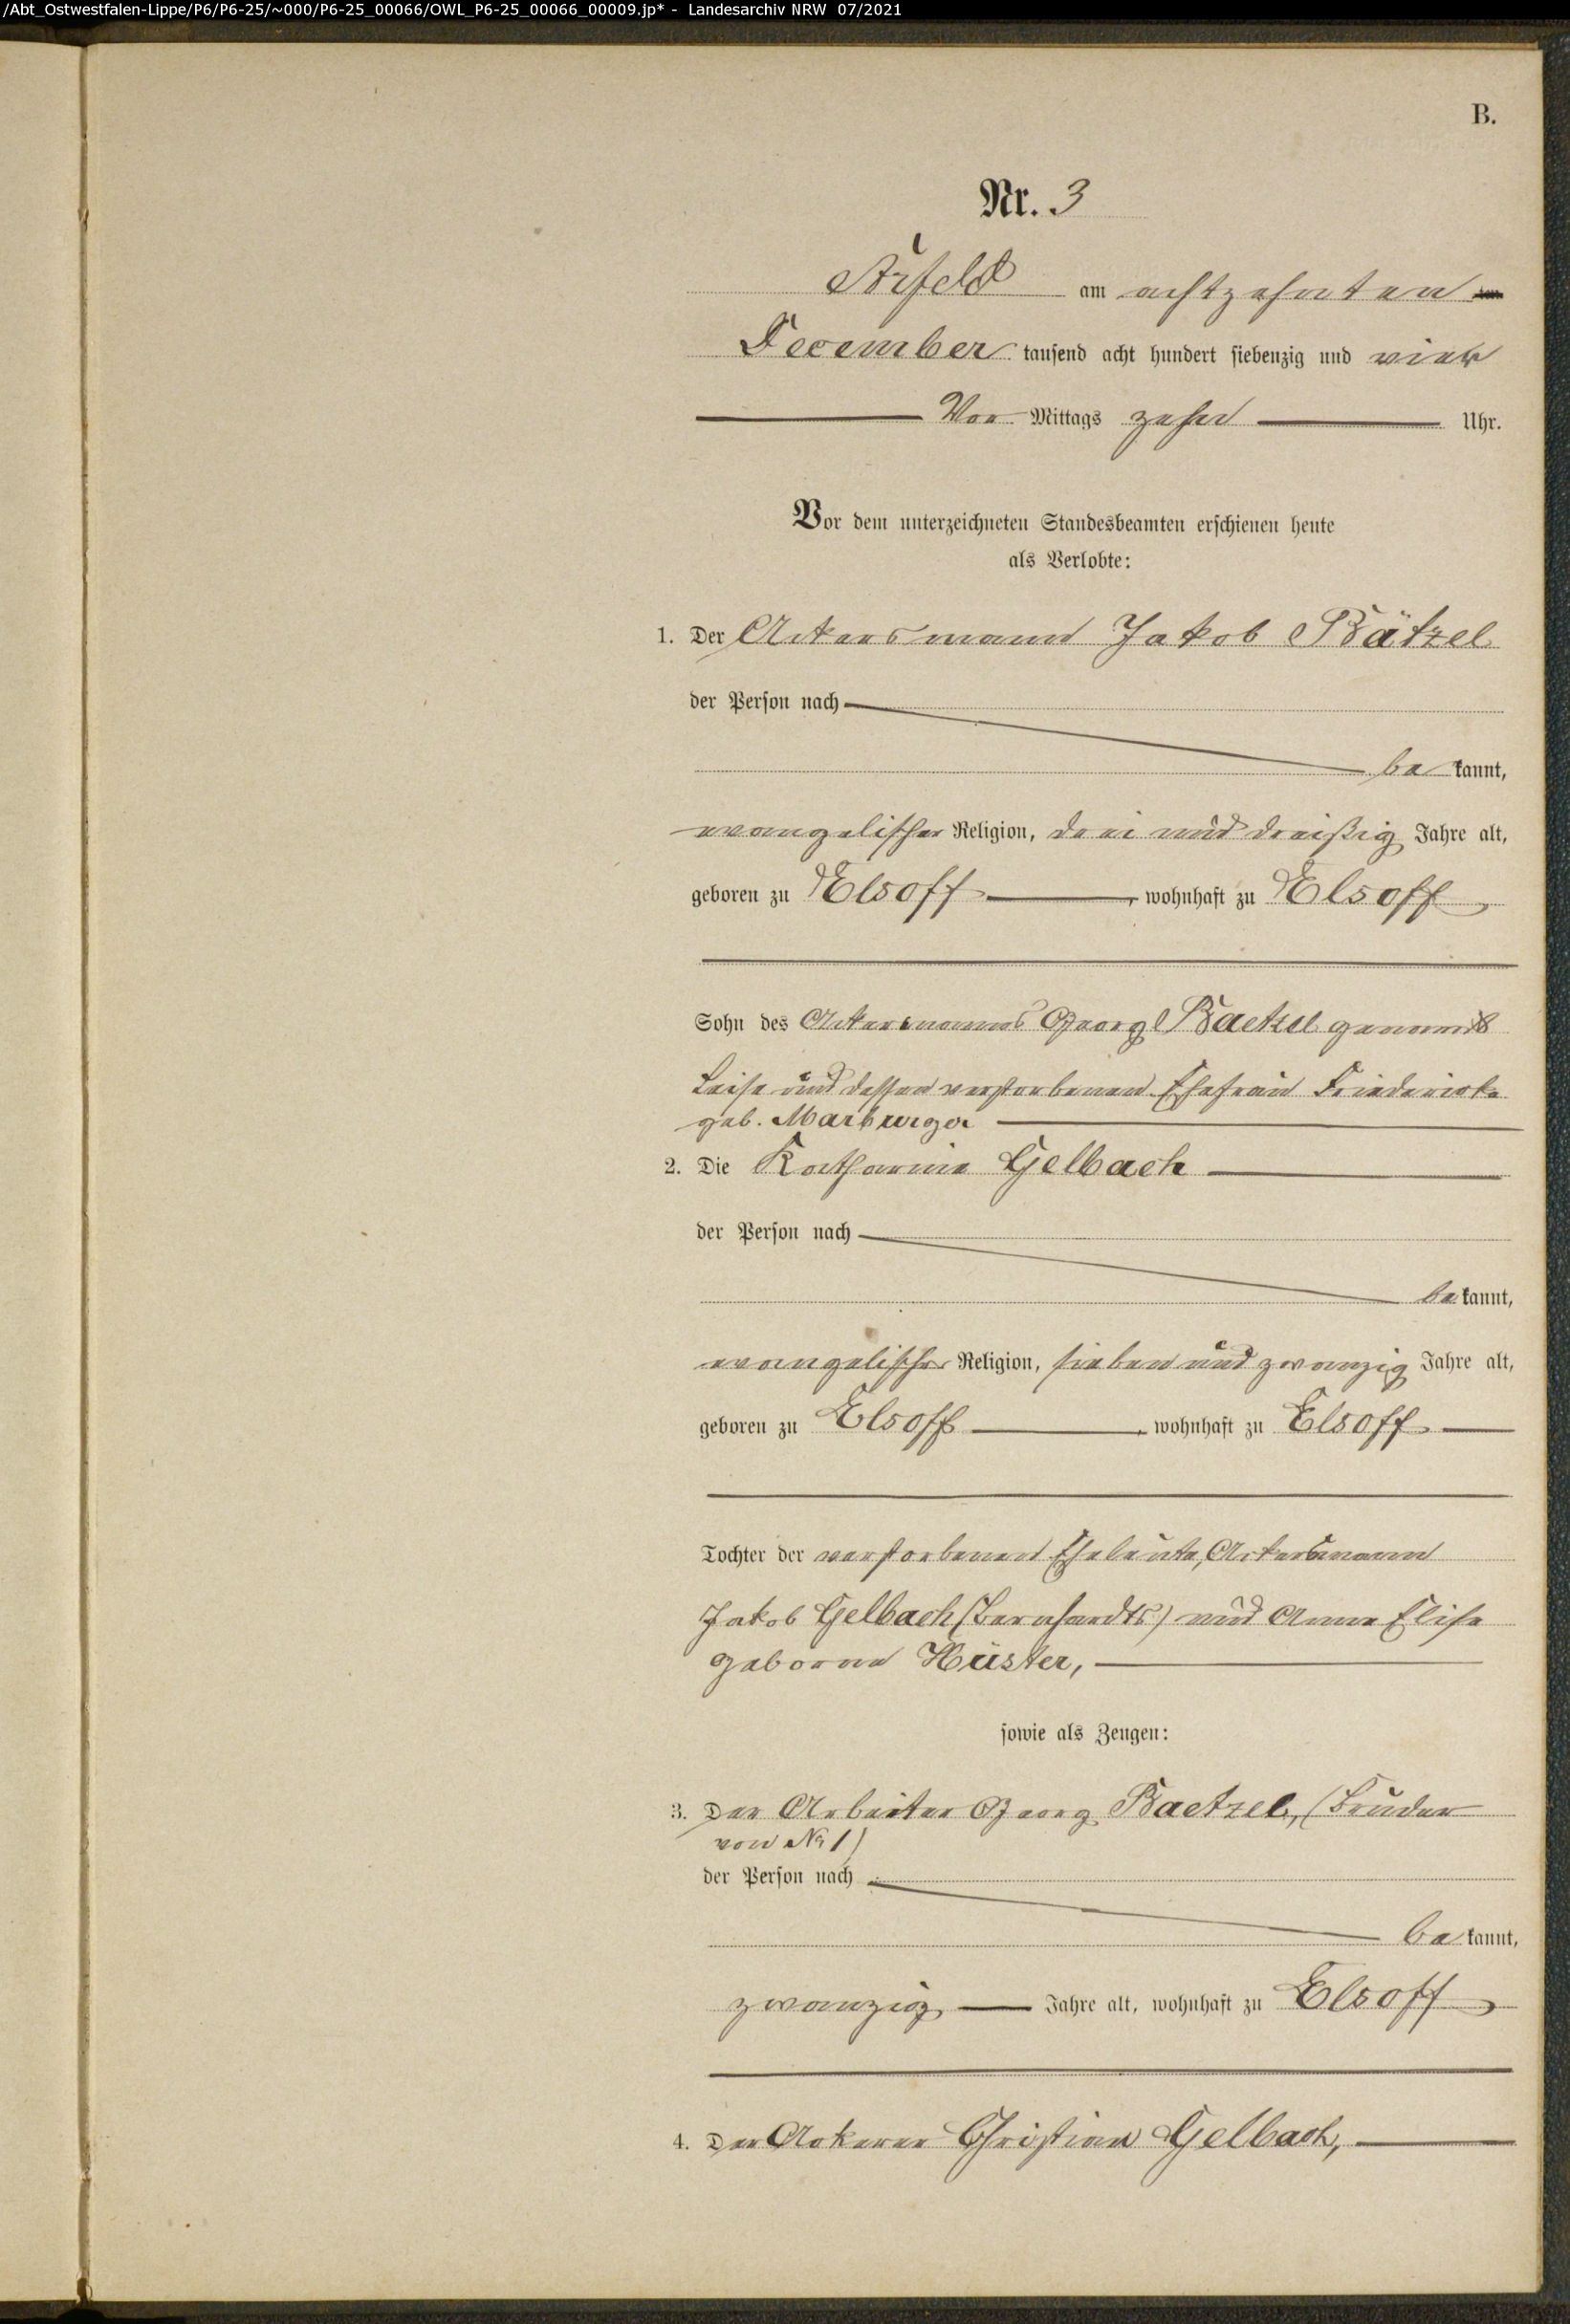 /Abt_Ostwestfalen-Lippe/P6/P6-25/~000/P6-25_00066/OWL_P6-25_00066_00009.jp* - Landesarchiv NRW 07/2021
B.
Nr. 3
Arfeld am achtzehnten
December tausend acht hundert siebenzig und vier
Vor Mittags zehn Uhr.
Vor dem unterzeichneten Standesbeamten erschienen heute
als Verlobte:
1. Der Ackersmann Jakob Bätzel
der Person nach
be kannt,
evangelischer Religion, drei und dreißig Jahre alt,
geboren zu Elsoff, wohnhaft zu Elsoff
Sohn des Ackersmanns Georg Baetzel genannt
Leise und dessen verstorbenen Ehefrau Friedericke
geb. Marburger
2. Die Katharine Gelbach
der Person nach
be kannt,
evangelischer Religion, sieben und zwanzig Jahre alt,
geboren zu Elsoff, wohnhaft zu Elsoff
Tochter der verstorbenen Eheleute, Ackersmann
Jakob Gelbach (Bernhardts) und Anna Elise
geborne Hüster,
sowie als Zeugen:
3. Der Arbeiter Georg Baetzel, (Bruder
von No 1)
der Person nach
be kannt,
zwanzig Jahre alt, wohnhaft zu Elsoff
4. Der Ackerer Christian Gelbach,